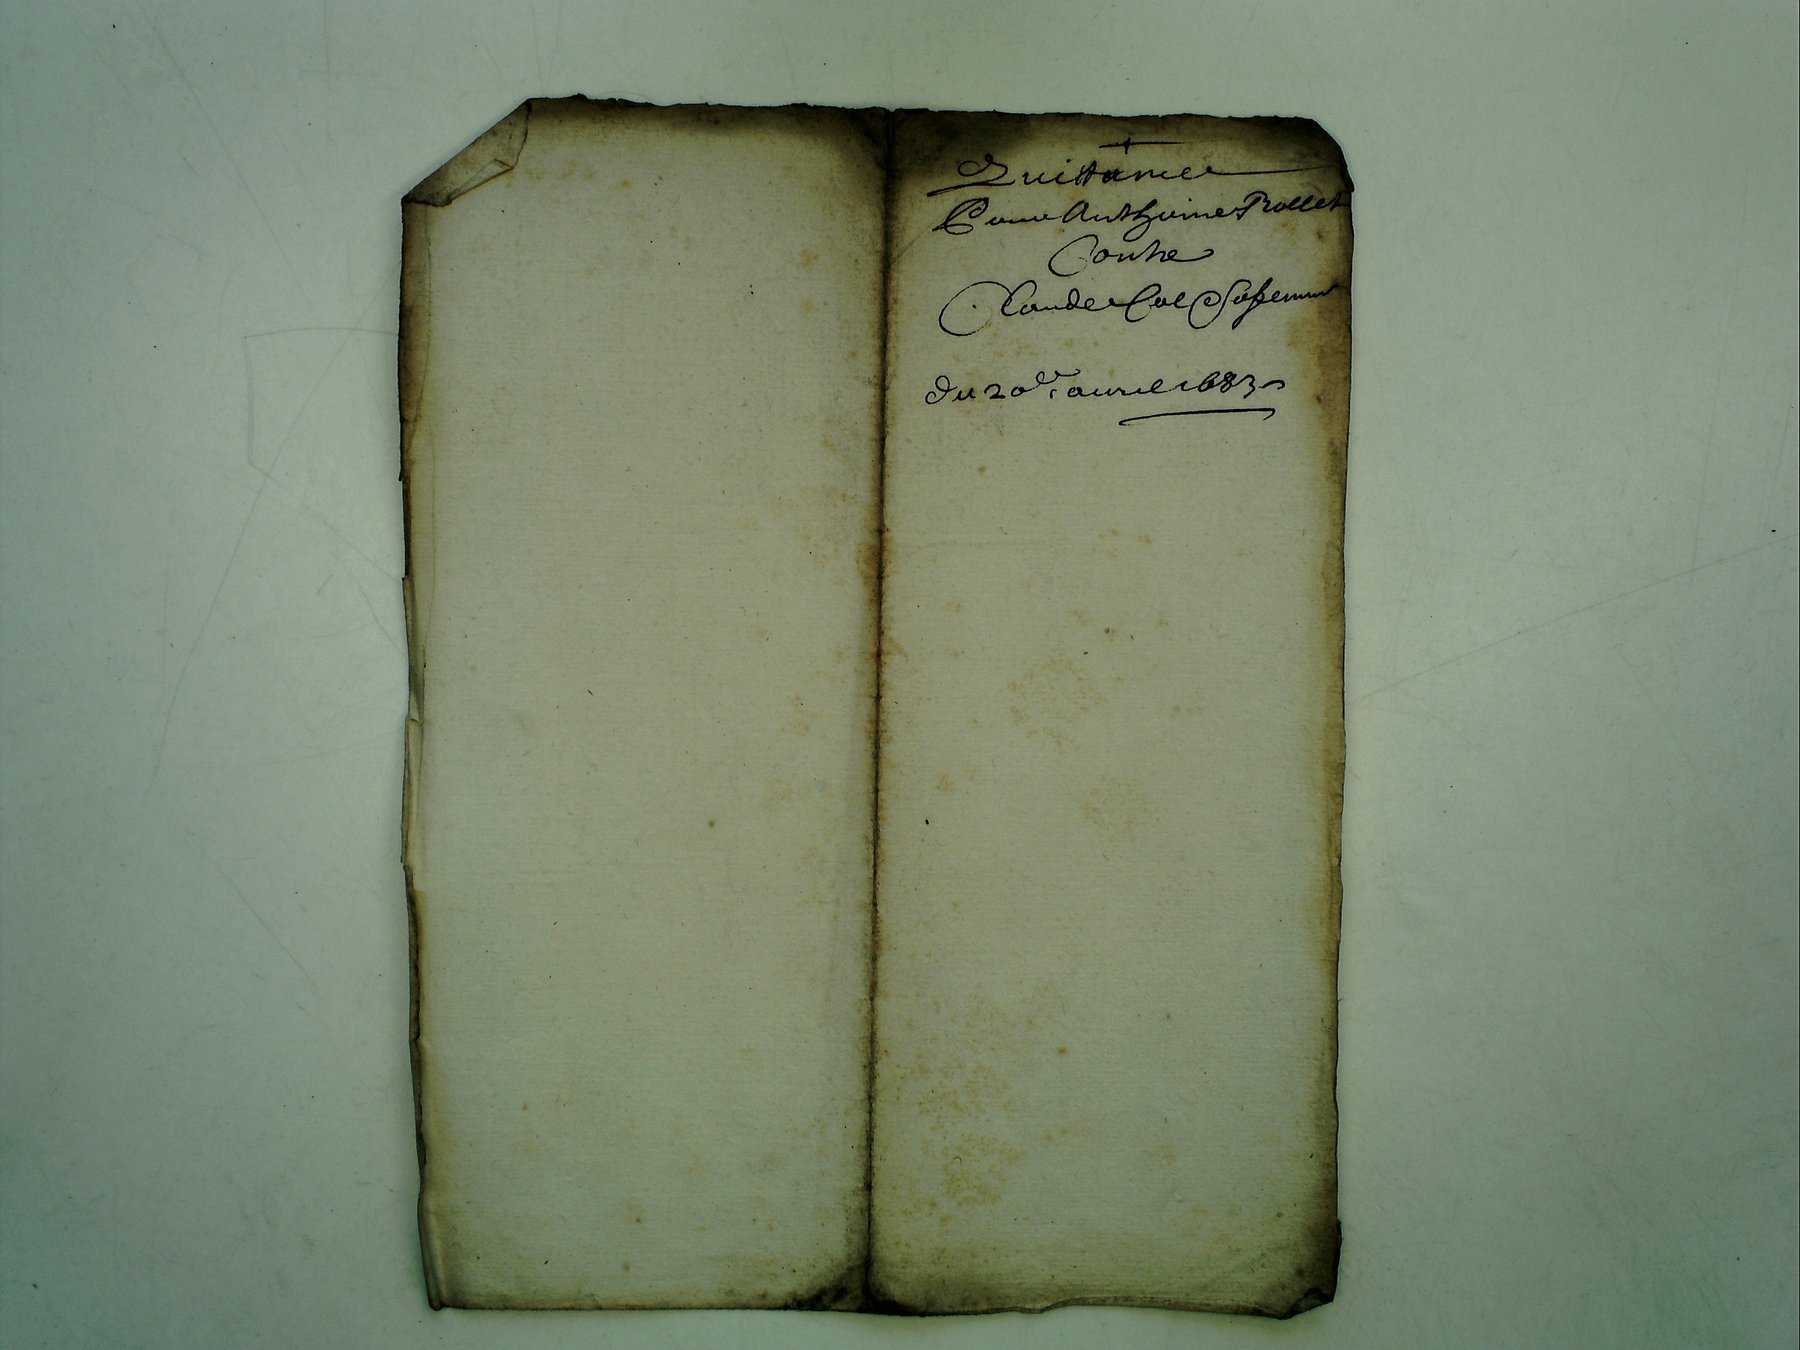 Quittance
Pour Anthoine Rollet
Contre
Claude Col
du 20e. auril 1683